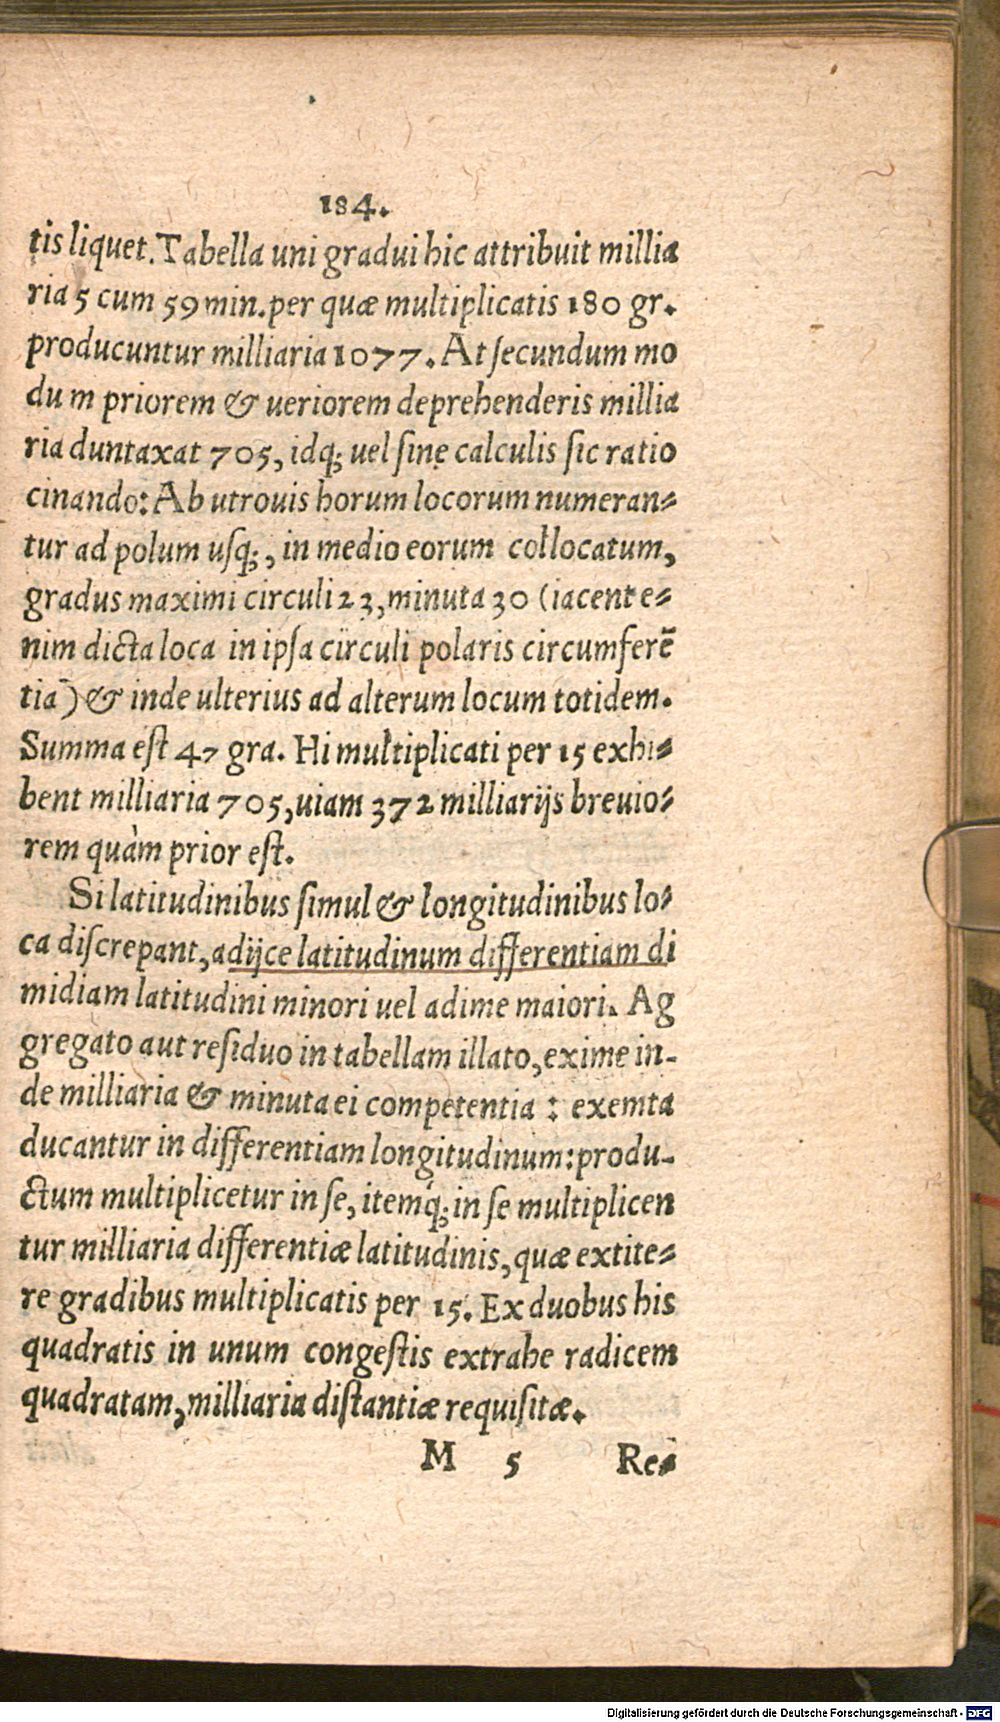 184.
tis liquet. Tabella uni gradui hic attribuit millia
ria 5 cum 59 min. per quæ multiplicatis 180 gr.
producuntur milliaria 1077. At ſecundum mo
dum priorem & ueriorem deprehenderis millia
ria duntaxat 705, idq; uel ſine calculis ſic ratio
cinando: Ab utrouis horum locorum numeran⸗
tur ad polum uſq;, in medio eorum collocatum,
gradus maximi circuli 23, minuta 30 (iacent e⸗
nim dicta loca in ipſa circuli polaris circumferē
tia) & inde ulterius ad alterum locum totidem.
Summa eſt 47 gra. Hi multiplicati per 15 exhi⸗
bent milliaria 705, uiam 372 milliarijs breuio⸗
rem quàm prior eſt.
Si latitudinibus ſimul & longitudinibus lo⸗
ca diſcrepant, adijce latitudinum differentiam di
midiam latitudini minori uel adime maiori. Ag
gregato aut reſiduo in tabellam illato, exime in-
de milliaria & minuta ei competentia: exemta
ducantur in differentiam longitudinum: produ-
ctum multiplicetur in ſe, itemq́; in ſe multiplicen
tur milliaria differentiæ latitudinis, quæ extite⸗
re gradibus multiplicatis per 15. Ex duobus his
quadratis in unum congeſtis extrahe radicem
quadratam, milliaria diſtantiæ requiſitæ.
M 5 Re⸗
Digitalisierung gefördert durch die Deutsche Forschungsgemeinschaft - DFG